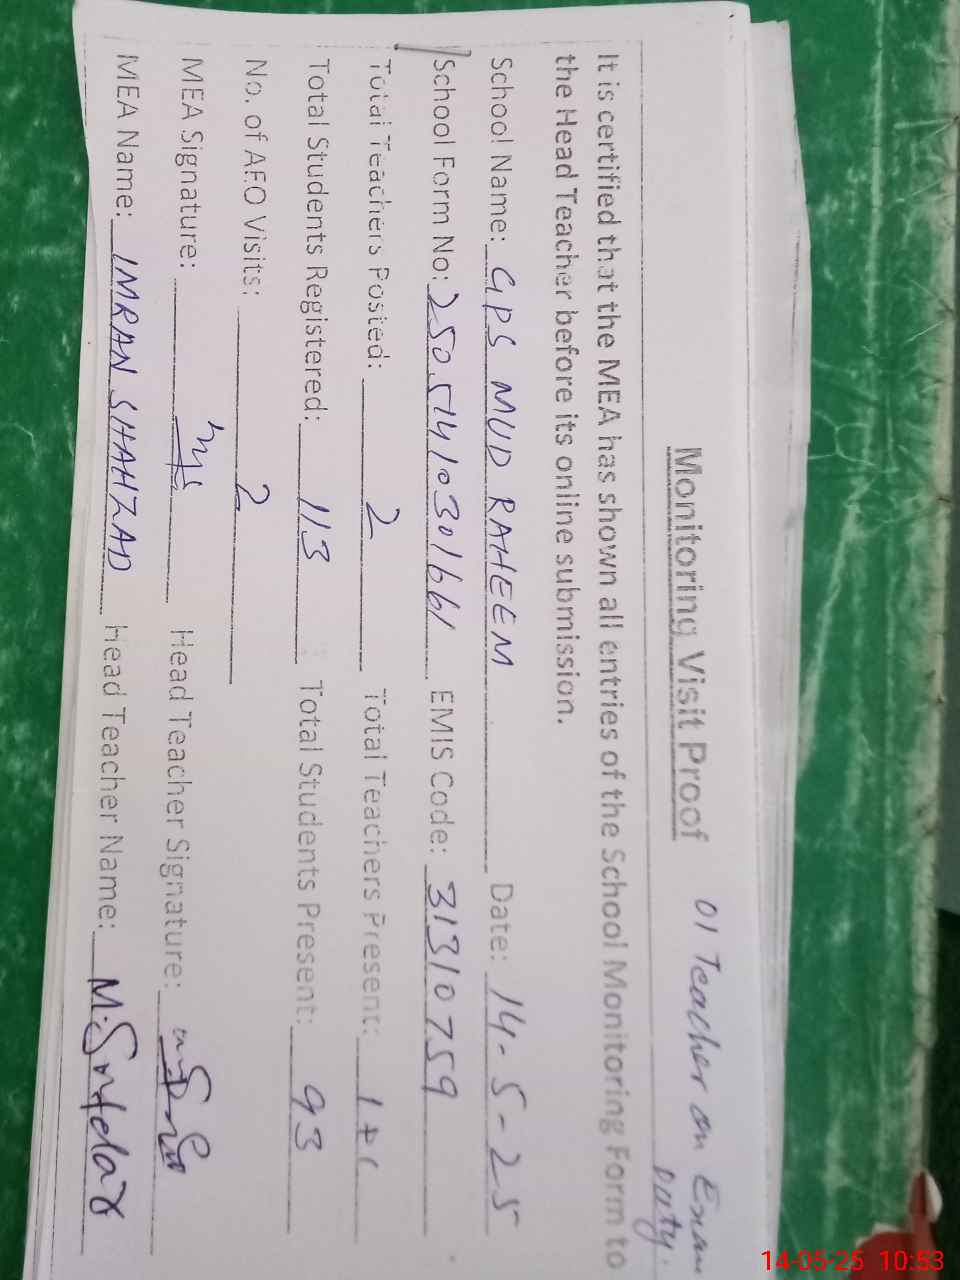 Monitoring Visit Proof 01 Teacher on Exam
Duty.
It is certified that the MEA has shown all entries of the School Monitoring Form to
the Head Teacher before its online submission.
School Name: GPS MUD RAHEEM Date: 14-5-25
School Form No: 25051410301661 EMIS Code: 31310759
Total Teachers Posted: 2 Total Teachers Present: 1+1
Total Students Registered: 113 Total Students Present: 93
No. of AEO Visits: 2
MEA Signature: Head Teacher Signature:
MEA Name: IMRAN SHAHZAD Head Teacher Name: M.
14-05-25 10:53